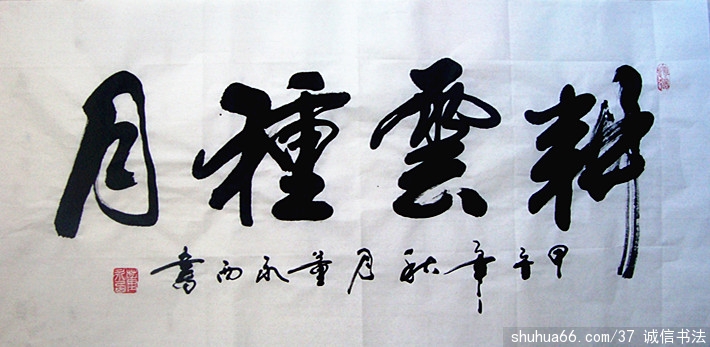 耕雲種月
甲午年秋月董永西書
shuhua66.com/37 诚信书法